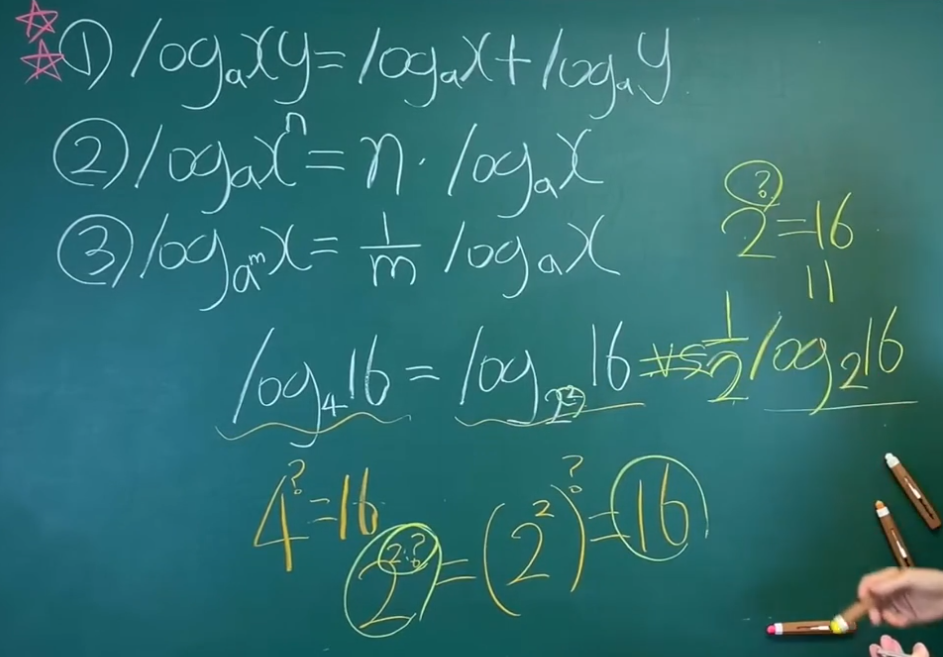 ① logₐxy = logₐx + logₐy
② logₐxⁿ = n · logₐx
③ log_{a^m} x = 1/m logₐx
2^? = 16
||
log₄16 = log_{2²} 16 vs 1/2 log₂16
4^? = 16
2^{2·?} = (2²)^? = 16